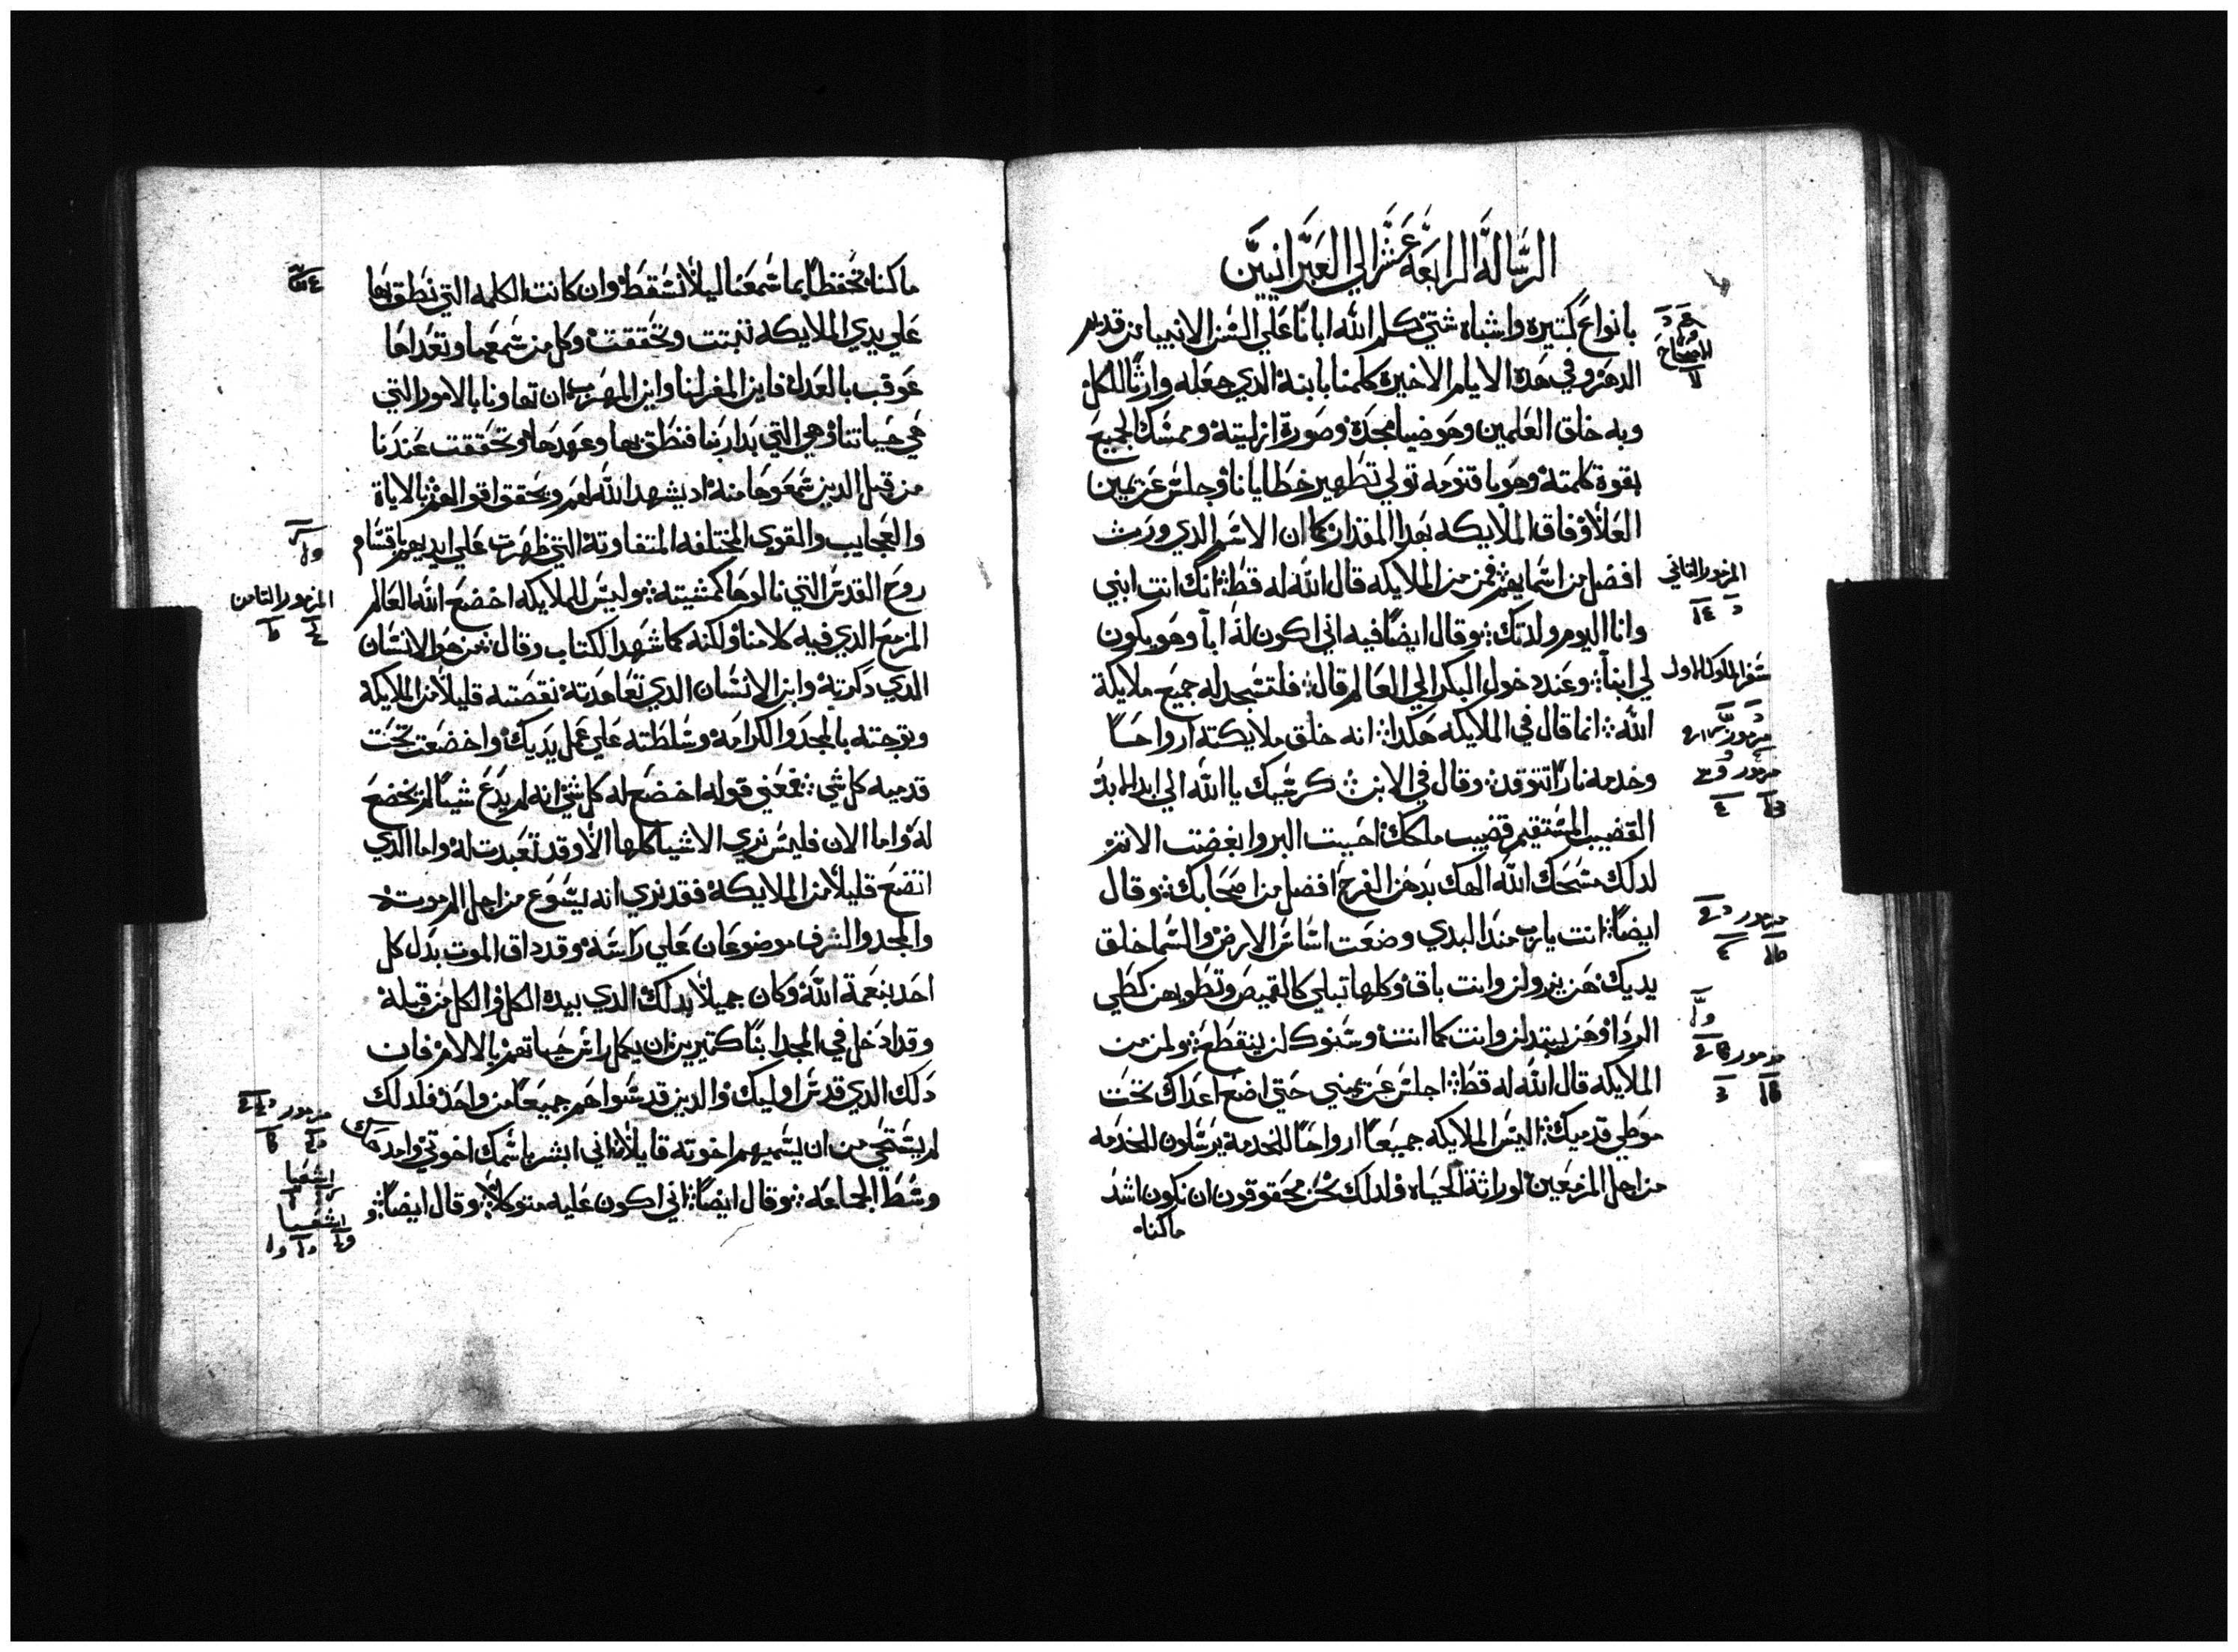 الرسالة الرابعة عشر الي العبرانيين
بانواع كتيره واشباه شتي كلم الله ابانا علي السن الانبيا من قديم
الدهر وفي هده الايام الاخيرة كلمنا بابنه الدي جعله وارثا للكل
وبه خلق العلمين وهو ضيا مجده وصورة ازليته وممسك الجميع
بقوة كلمته وهو باقنومه تولي تطهير خطايانا وجلس عن يمين
العلا وفاق الملايكه بهدا المقدار كما ان الاسم الدي ورث
افضل من اسمايهم فمن من الملايكه قال الله له قط انك انت ابني
وانا اليوم ولدتك وقال ايضا فيه اني اكون له ابا وهو يكون
لي ابنا وعند دخول البكر الي العالم قال فلتسجد له جميع ملايكة
الله انما قال في الملايكه هكدا انه خلق ملايكته ارواحا
وخدمه نارا تتوقد وقال في الابن كرسيك يا الله الي ابد الابد
القضيب المستقيم قضيب ملكك احببت البر وابغضت الاتم
لدلك مسحك الله الهك بدهن الفرح افضل من اصحابك وقال
ايضا انت يارب مند البدي وضعت اساس الارض والسما خلق
يديك هن يزولن وانت باق وكلها تبلي كالقميص وتطويهن كطي
الردا وهن يبتدلن وانت كما انت وسنوك لن ينقطع ولمن من
الملايكه قال الله له قط اجلس عن يميني حتي اضع اعداك تحت
موطي قدميك اليس الملايكه جميعا ارواحا للخدمة يرسلون للخدمه
من اجل المزمعين لوراثة الحياه ولدلك نحن محقوقون ان نكون اشد
ماكناه
المزمور التاني
سفر الملوك الاول
ماكناه تحفظا بما سمعنا ليلا نسقط وان كانت الكلمه التي نطق بها
علي يدي الملايكه تتبتت وتحققت وكل من سمعها وتعداها
عوقب بالعدل فاين المفر لنا واين المهرب ان تهاونا بالامور التي
هي حياتنا وهي التي بدا ربنا فنطق بها وعهدها وتحققت عندنا
من قبل الدين سمعوها منه اد يشهد الله لهم ويحقق اقوالهم بالاياة
والعجايب والقوي المختلفه المتفاوته التي ظهرت علي ايديهم باقسام
روح القدس التي نالوها كمشيته وليس للملايكه اخضع الله العالم
المزمع الدي فيه كلامنا ولكنه كما شهد الكتاب وقال من هو الانسان
الدي دكرته وابن الانسان الدي تعاهدته نقصته قليلا من الملايكة
وتوجته بالمجد والكرامه وسلطته علي عمل يديك واخضعت تحت
قدميه كل شي فمعني قوله اخضع له كل شي انه لم يدع شيا لم يخضع
له واما الان فليس نري الاشيا كلها الا وقد تعبدت له واما الدي
اتضع قليلا من الملايكة فقد نري انه يسوع من اجل الم موته
والمجد والشرف موضوعان علي راسه وقد داق الموت بدل كل
احد بنعمة الله وكان جميلا بدلك الدي بيده الكل والكل من قبله
وقد ادخل في المجد ابنا كتيرين ان يكمل راس حياتهم بالالام فان
دلك الدي قدس اوليك والدين قدسوا هم جميعا من واحد فلدلك
لم يستحي من ان يسميهم اخوته قايلا اني ابشر باسمك اخوتي وامدحك
وسط الجماعه وقال ايضا اني اكون عليه متوكلا وقال ايضا
المزمور التامن
اشعيا
اشعيا